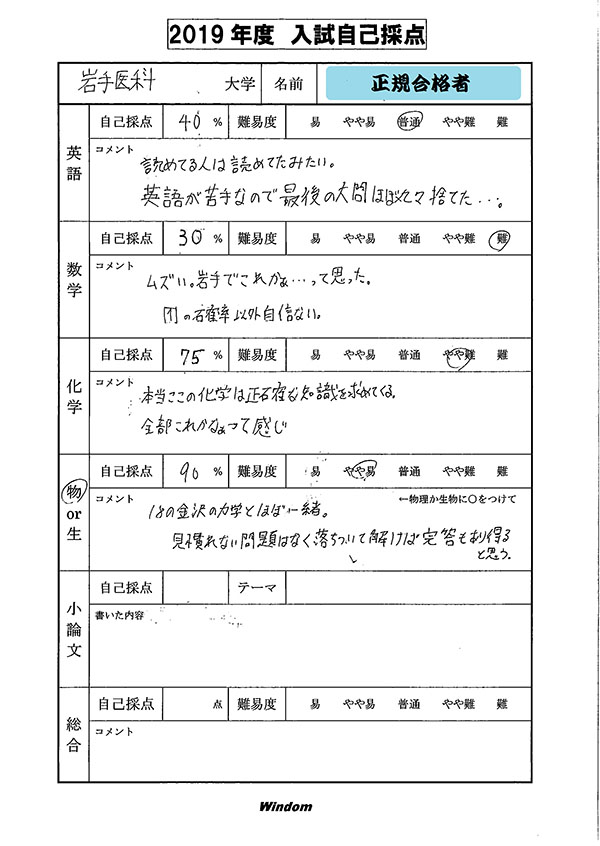 2019年度 入試自己採点
岩手医科 大学 名前 正規合格者
英語 自己採点 40 % 難易度 易 やや易 普通 やや難 難
コメント
読めてる人は読めてたみたい。
英語が苦手なので最後の大問ほぼ 捨てた…。
数学 自己採点 30 % 難易度 易 やや易 普通 やや難 難
コメント
ムズい。岩手でこれかぁ…って思った。
の確率以外自信ない。
化学 自己採点 75 % 難易度 易 やや易 普通 やや難 難
コメント
本当ここの化学は正確な知識を求めてくる。
全部これかなぁって感じ
物or生 自己採点 90 % 難易度 易 やや易 普通 やや難 難
コメント ←物理か生物に○をつけて
18の金沢の力学とほぼ一緒。
見慣れない問題はなく落ちついて解けば完答もあり得る
と思う。
小論文 自己採点 テーマ
書いた内容
総合 自己採点 点 難易度 易 やや易 普通 やや難 難
コメント
Windom